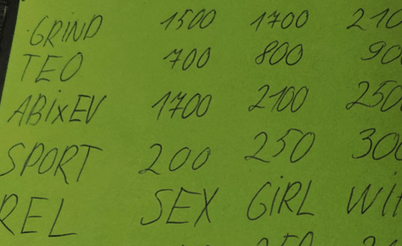 GRIND 1500 1700 210
TEO 700 800 90
ABIXEV 1700 2100 250
SPORT 200 250 300
REL SEX GIRL WIF